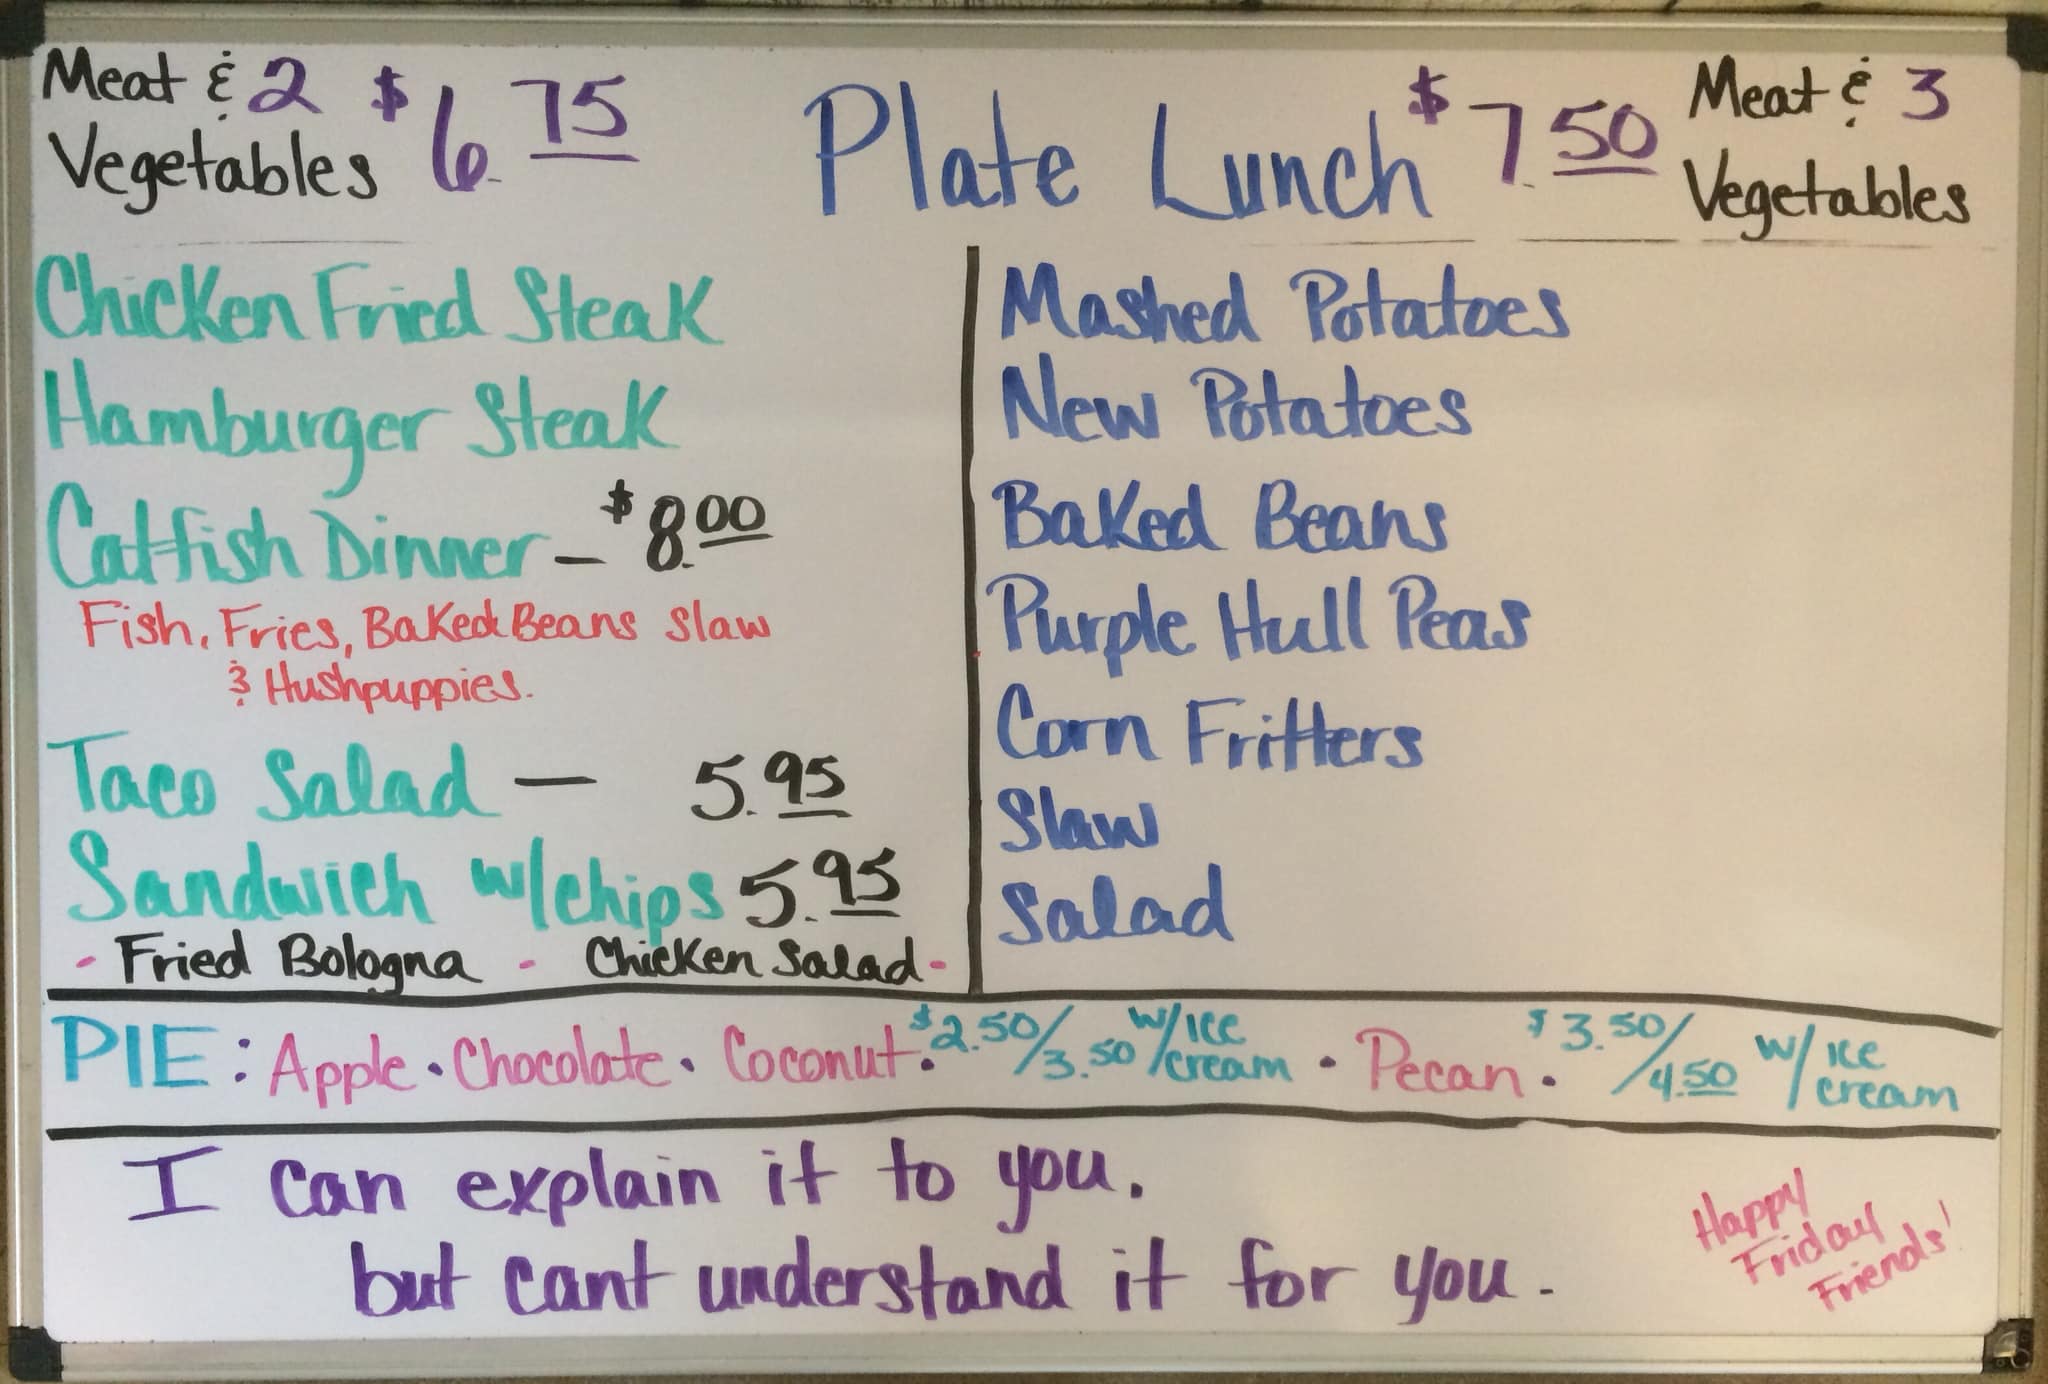 Meat & 2 Vegetables $6.75
Plate Lunch
$7.50 Meat & 3 Vegetables
Chicken Fried Steak
Hamburger Steak
Catfish Dinner - $8.00
Fish, Fries, Baked Beans Slaw
& Hushpuppies.
Taco Salad - 5.95
Sandwich w/chips 5.95
- Fried Bologna - Chicken Salad -
Mashed Potatoes
New Potatoes
Baked Beans
Purple Hull Peas
Corn Fritters
Slaw
Salad
PIE: Apple • Chocolate • Coconut • $2.50/3.50 w/ice cream • Pecan • $3.50/4.50 w/ice cream
I can explain it to you.
but cant understand it for you.
Happy
Friday
Friends!